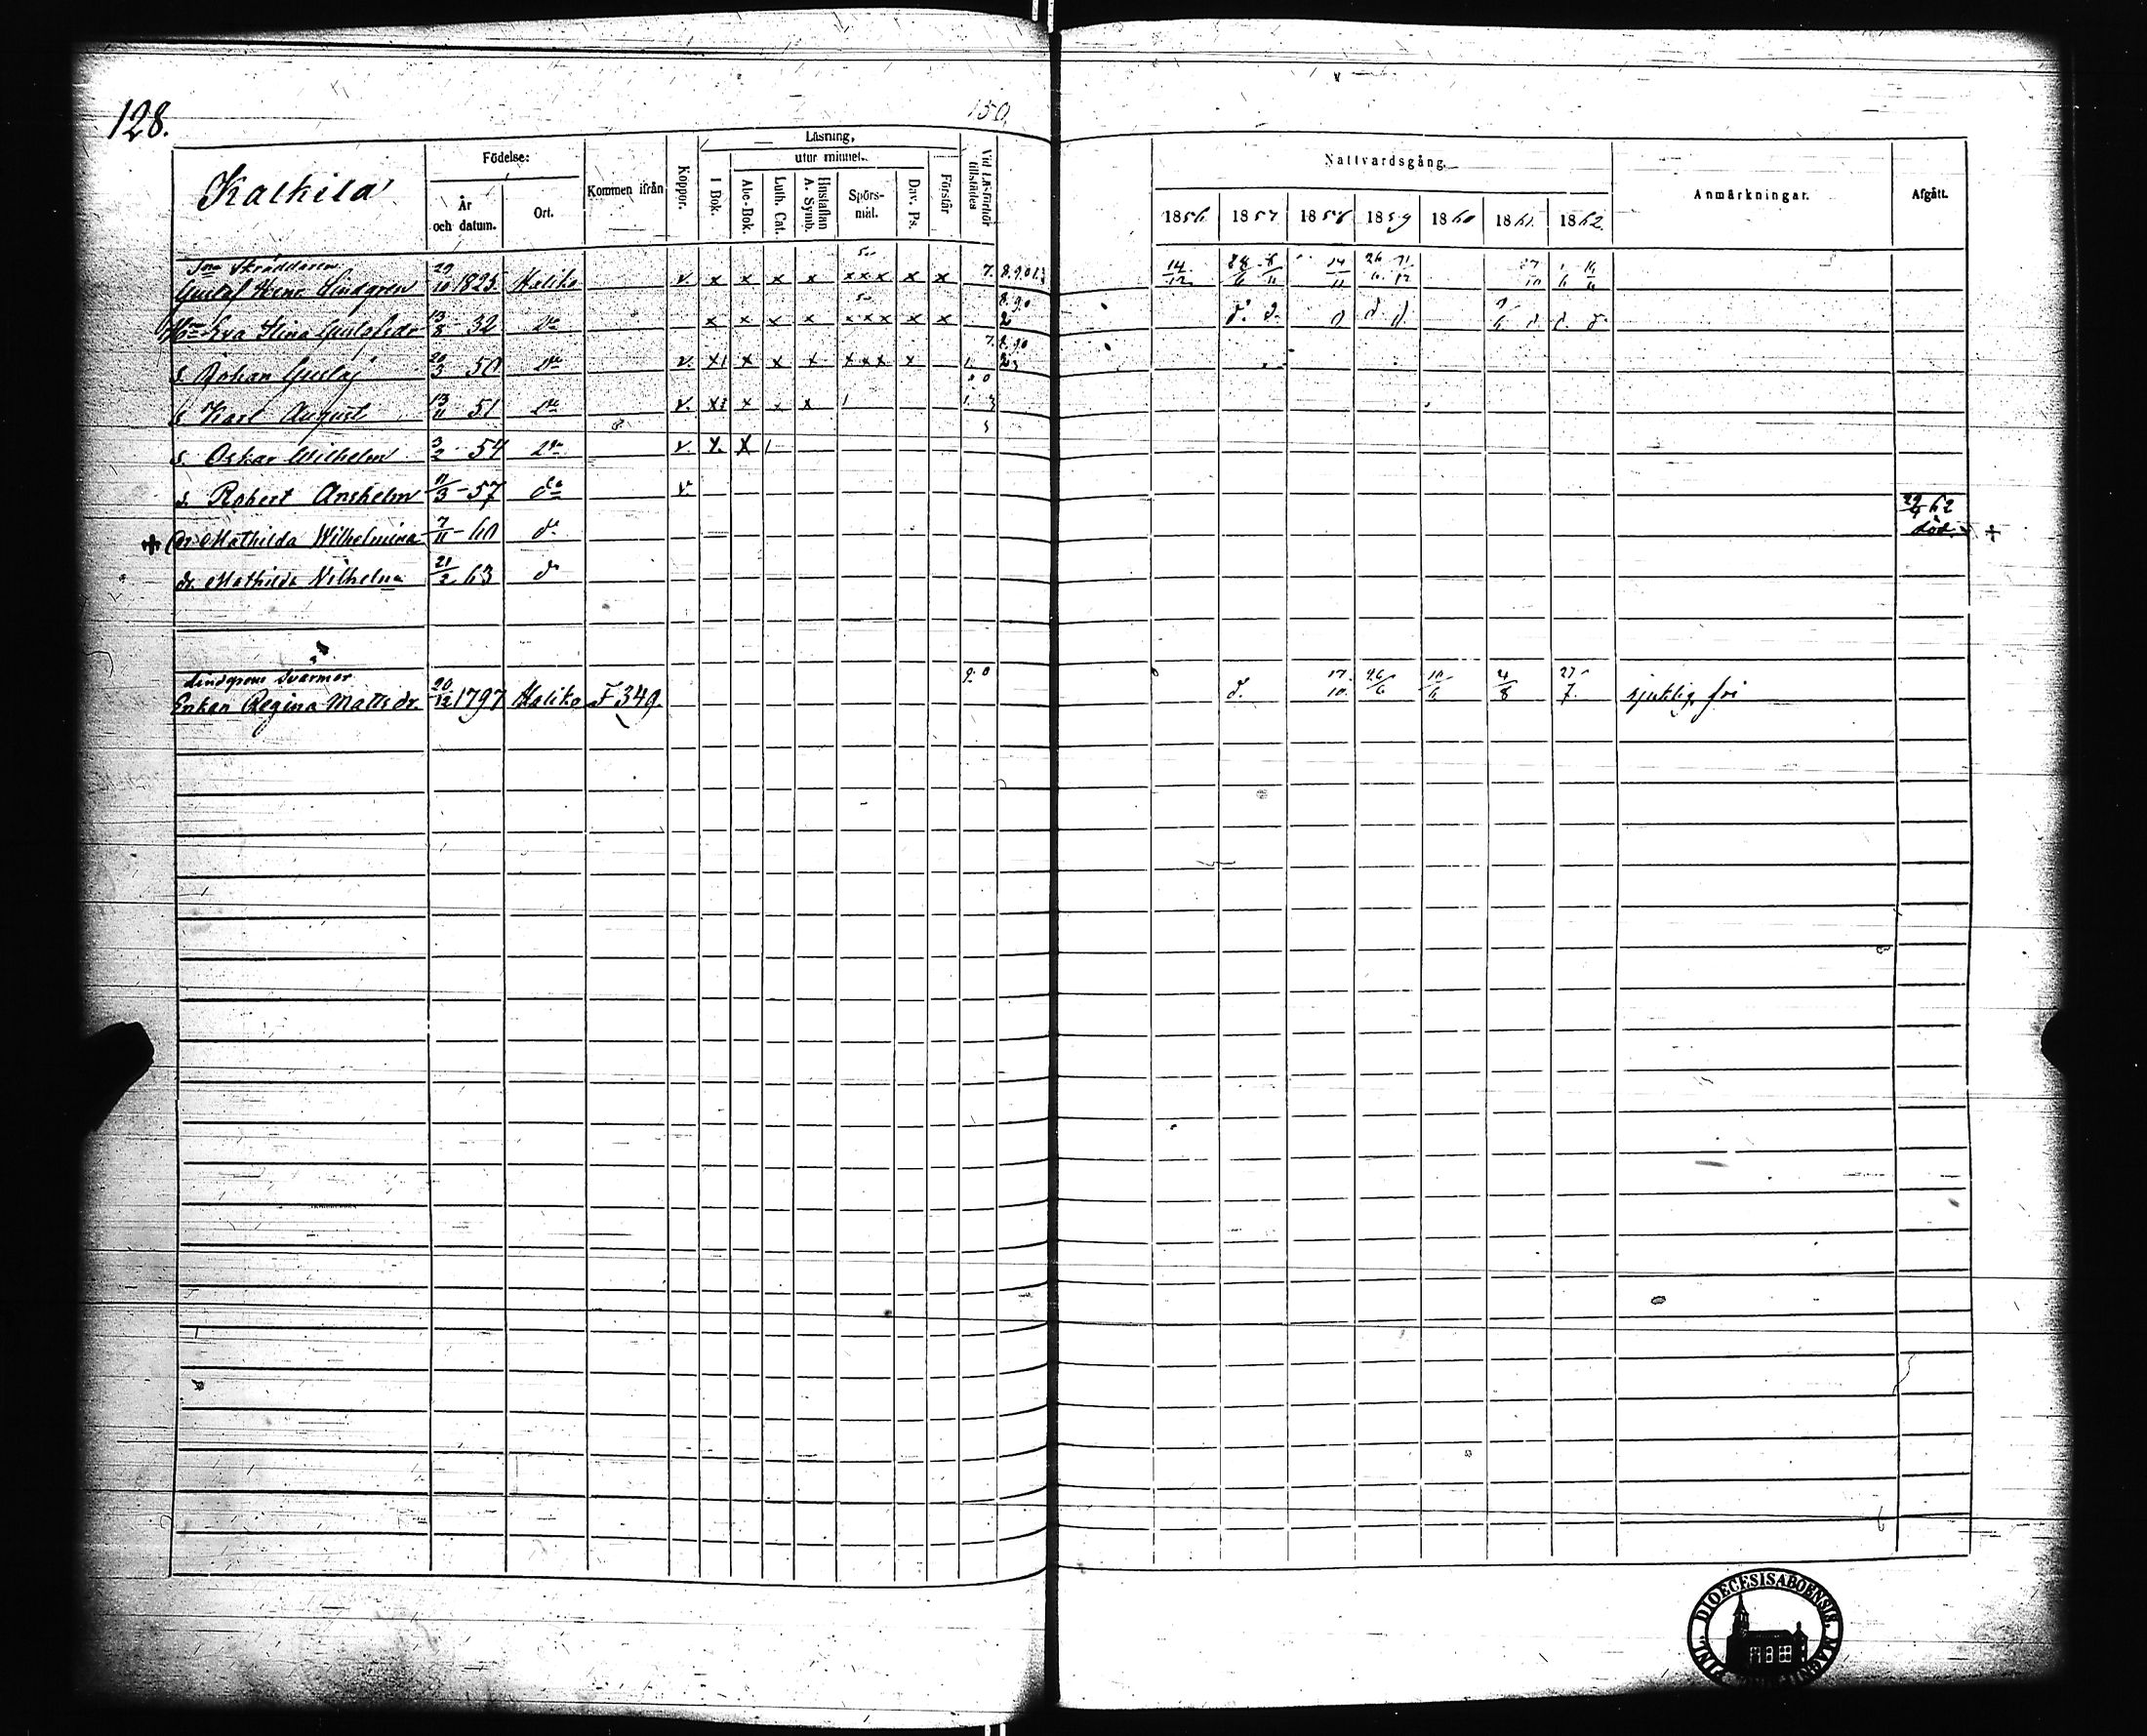 128.
150.
Kalkila
Födelse:
År och datum.
Ort.
Kommen ifrån
Koppor.
Läsning,
utur minnet.
I Bok.
Abc-Bok.
Luth. Cat.
Hustaflan A. Symb.
Spörs-mål.
Dav. Ps.
Förstår
Vid Läsförhör tillstädes
Nattvardsgång.
1856. 1857 1858 1859 1860 1861. 1862.
Anmärkningar.
Afgått.
Skräddaren
Gustaf Lindgren 29/10 1825. Haliko v. x x x x xxx x x 7. 14/12
Eva Stina Gustafsdr 13/8 32 Do x x x x xxx x x
s. Johan Gustaf 20/3 50 do v. x x x x xxx x
s. Karl August 13/11 51 do v. x x x
s. Oskar Wilhelm 3/2 54 do v. x. X
s. Robert Anshelm 11/3 - 57 do v.
+ dr. Mathilda Wilhelmina 7/11 - 60 do 29/4 62 död. +
dr. Mathilda Vilhelma 21/2 63 do
Lindgrens Svärmor
Enkan Regina Matts dr. 20/12 1797 Haliko F 349. 9. 0 d. 17/10. 26/6 10/6 4/8 27/7. sjuklig, fri
FINL. DIOECESIS ABOENSIS. MAGN